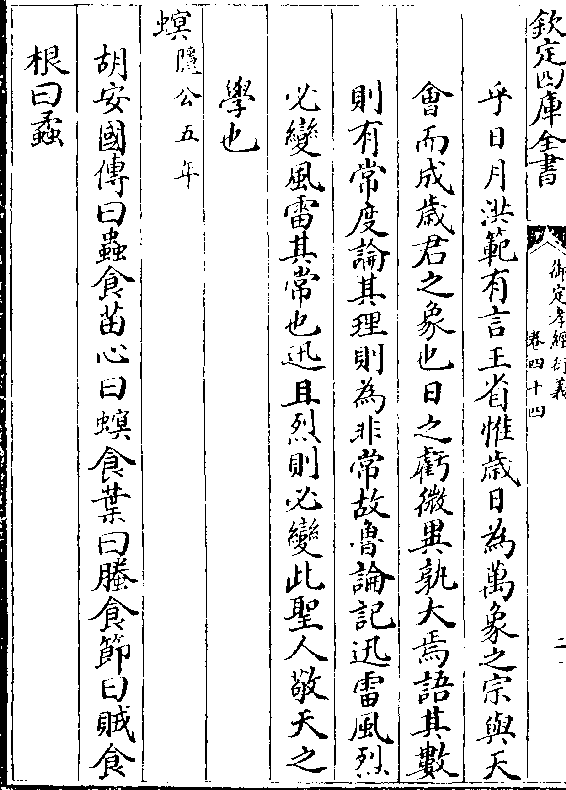 欽定四庫全書
御定孝經衍義
卷四十四
二
乎日月洪範有言王省惟歲日為萬象之宗與天
會而成歲君之象也日之虧微異孰大焉語其數
則有常度論其理則為非常故魯論記迅雷風烈
必變風雷其常也迅且烈則必變此聖人敬天之
學也
螟隱公五年
胡安國傳曰蟲食苗心曰螟食葉曰螣食節曰賊食
根曰蟊